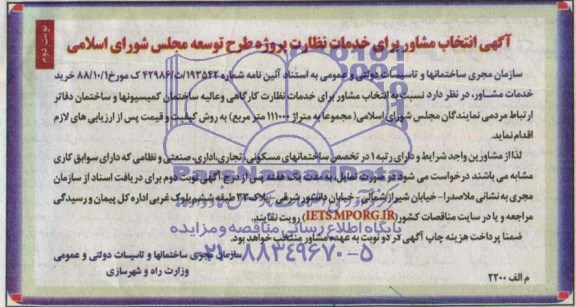 نوبت دوم
آگهی انتخاب مشاور برای خدمات نظارت پروژه طرح توسعه مجلس شورای اسلامی
سازمان مجری ساختمانها و تاسیسات دولتی و عمومی به استناد آئین نامه شماره ۱۹۳۵۴۲/ت۴۲۹۸۶ ک مورخ ۸۸/۱۰/۱ خرید
خدمات مشاور، در نظر دارد نسبت به انتخاب مشاور برای خدمات نظارت کارگاهی و عالیه ساختمان کمیسیونها و ساختمان دفاتر
ارتباط مردمی نمایندگان مجلس شورای اسلامی (مجموعا به متراژ ۱۱۱۰۰۰ متر مربع) به روش کیفیت و قیمت پس از ارزیابی های لازم
اقدام نماید.
لذا از مشاورین واجد شرایط و دارای رتبه ۱ در تخصص ساختمانهای مسکونی، تجاری، اداری، صنعتی و نظامی که دارای سوابق کاری
مشابه می باشند درخواست می شود در صورت تمایل، به مدت یک هفته پس از درج آگهی نوبت دوم برای دریافت اسناد از سازمان
مجری به نشانی ملاصدرا- خیابان شیراز شمالی- خیابان دانشور شرقی- پلاک ۲۳ طبقه ششم بلوک غربی اداره کل پیمان و رسیدگی
مراجعه و یا در سایت مناقصات کشور (IETS.MPORG.IR) رویت نمایند.
ضمنا پرداخت هزینه چاپ آگهی در دو نوبت به عهده مشاور منتخب خواهد بود.
سازمان مجری ساختمانها و تاسیسات دولتی و عمومی
وزارت راه و شهرسازی
م الف ۲۲۰۰
ParsNamadData
پایگاه اطلاع رسانی مناقصه و مزایده
۰۲۱-۸۸۳۴۹۶۷۰-۵